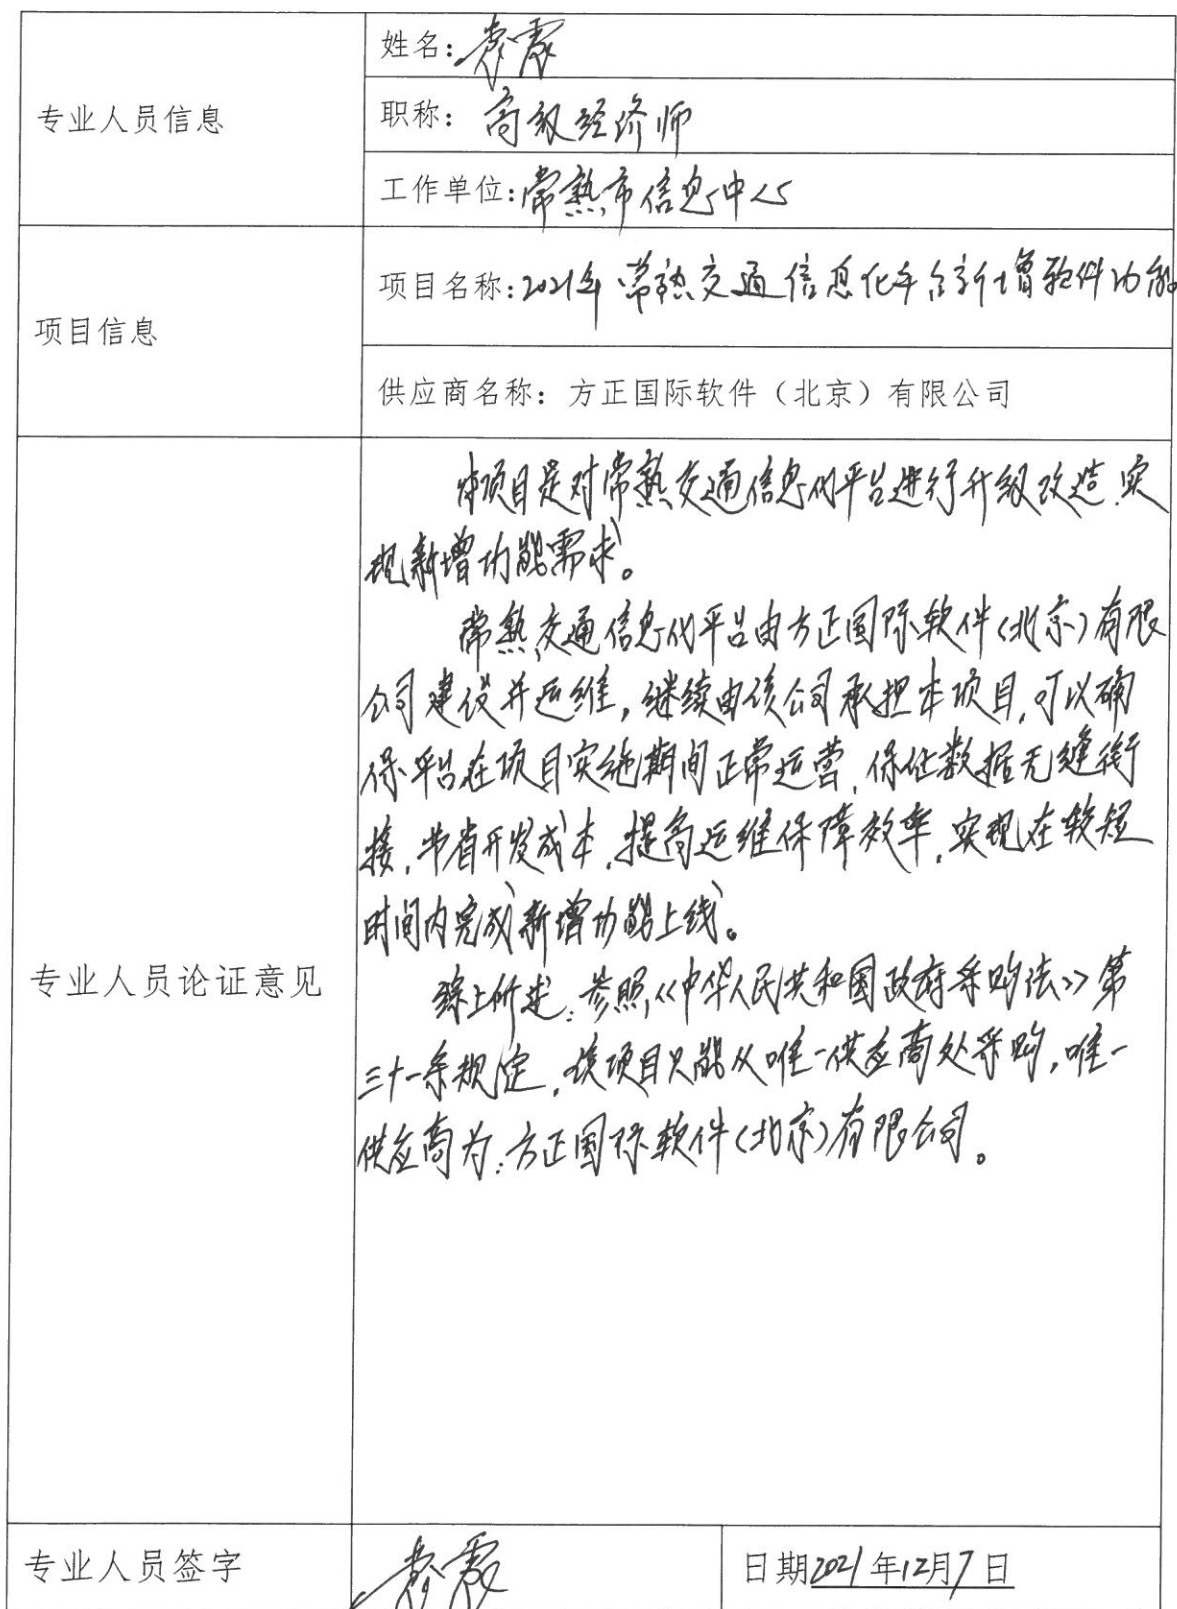 专业人员信息
姓名：袁霞
职称：高级经济师
工作单位：常熟市信息中心
项目信息
项目名称：2021年常熟交通信息化平台新增软件功能
供应商名称：方正国际软件（北京）有限公司
专业人员论证意见
本项目是对常熟交通信息化平台进行升级改造，实
现新增功能需求。
常熟交通信息化平台由方正国际软件（北京）有限
公司建设并运维，继续由该公司承担本项目，可以确
保平台在项目实施期间正常运营，保证数据无缝衔
接，节省开发成本，提高运维保障效率，实现在较短
时间内完成新增功能上线。
综上所述，参照《中华人民共和国政府采购法》第
三十一条规定，该项目只能从唯一供应商处采购，唯一
供应商为：方正国际软件（北京）有限公司。
专业人员签字
袁霞
日期2021年12月7日